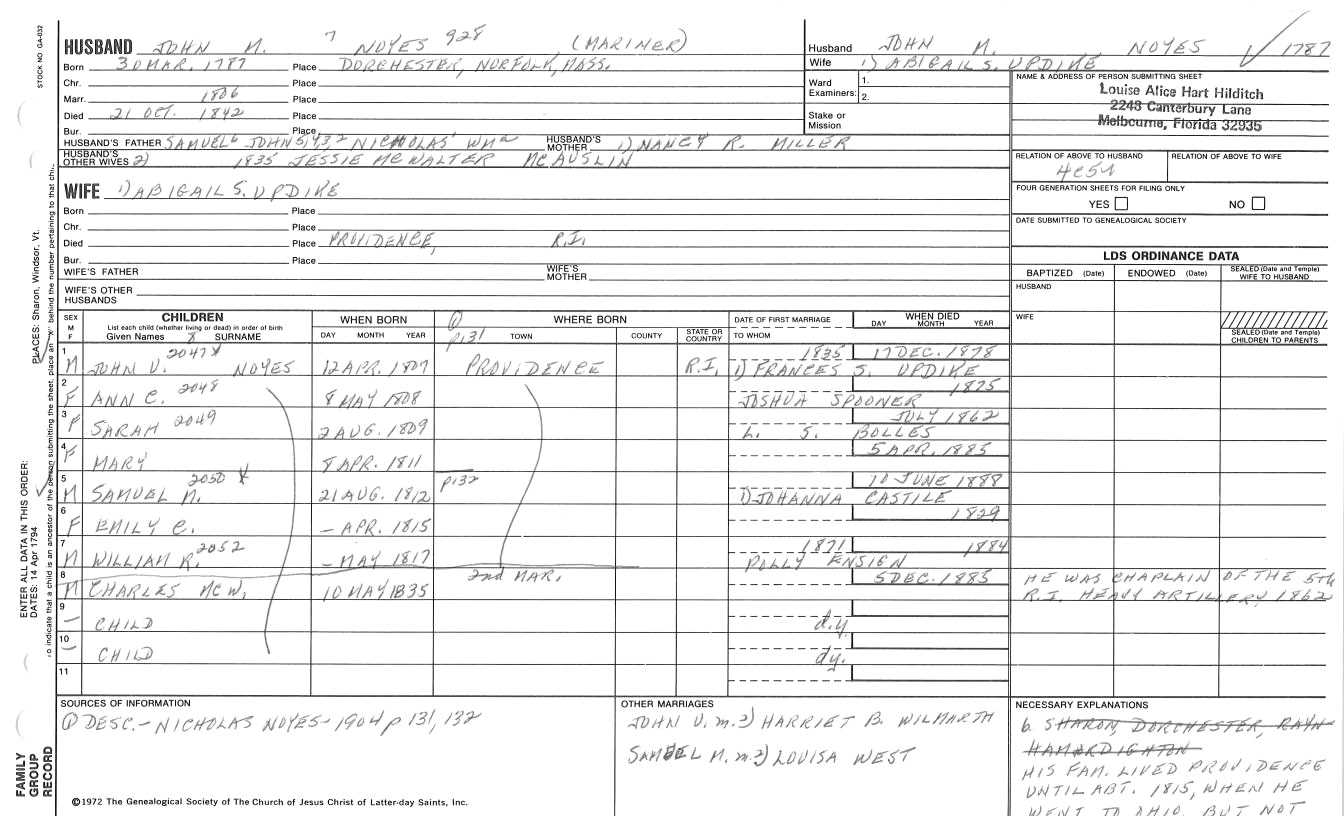 STOCK NO. GA-032
HUSBAND JOHN M. 7 NOYES 928 (MARINER)
Born 30 MAR. 1787 Place DORCHESTER, NORFOLK, MASS.
Chr. Place
Marr. 1806 Place
Died 21 OCT. 1842 Place
Bur. Place
HUSBAND'S FATHER SAMUEL6 JOHN5,4,3,2 NICHOLAS' WMa HUSBAND'S MOTHER 1) NANCY R. MILLER
HUSBAND'S OTHER WIVES 2) 1835 JESSIE MCWALTER MCAUSLIN
Husband JOHN M. NOYES 1787
Wife 1) ABIGAIL S. UPDIKE
Ward Examiners: 1.
2.
Stake or Mission
NAME & ADDRESS OF PERSON SUBMITTING SHEET
Louise Alice Hart Hilditch
2243 Canterbury Lane
Melbourne, Florida 32935
RELATION OF ABOVE TO HUSBAND RELATION OF ABOVE TO WIFE
4C5R
FOUR GENERATION SHEETS FOR FILING ONLY
YES NO
DATE SUBMITTED TO GENEALOGICAL SOCIETY
WIFE 1) ABIGAIL S. UPDIKE
Born Place
Chr. Place
Died Place PROVIDENCE, R.I.
Bur. Place
WIFE'S FATHER WIFE'S MOTHER
WIFE'S OTHER HUSBANDS
LDS ORDINANCE DATA
BAPTIZED (Date) ENDOWED (Date) SEALED (Date and Temple) WIFE TO HUSBAND
HUSBAND
WIFE
SEALED (Date and Temple) CHILDREN TO PARENTS
SEX M F
CHILDREN
List each child (whether living or dead) in order of birth
Given Names 8 SURNAME
WHEN BORN
DAY MONTH YEAR
① p131
WHERE BORN
TOWN COUNTY STATE OR COUNTRY
DATE OF FIRST MARRIAGE
TO WHOM
WHEN DIED
DAY MONTH YEAR
1 M JOHN U. 2047 X NOYES 12 APR. 1807 PROVIDENCE R.I. 1835 17 DEC. 1878
1) FRANCES S. UPDIKE
2 F ANN C. 2048 8 MAY 1808 1875
JOSHUA SPOONER
3 F SARAH 2049 2 AUG. 1809 JULY 1862
L. S. BOLLES
4 F MARY 8 APR. 1811 5 APR. 1885
5 M SAMUEL M. 2050 X 21 AUG. 1812 p132 10 JUNE 1888
1) JOHANNA CASTILE
6 F EMILY C. — APR. 1815 1829
7 M WILLIAM R. 2052 — MAY 1817 1871 1884
POLLY ENSIGN
8 M CHARLES MCW. 10 MAY 1835 2nd MAR. 5 DEC. 1885
HE WAS CHAPLAIN OF THE 5th
R.I. HEAVY ARTILLERY 1862
9 — CHILD d.y.
10 — CHILD dy.
11
SOURCES OF INFORMATION
① DESC.- NICHOLAS NOYES- 1904 p 131, 132
OTHER MARRIAGES
JOHN U. m. 2) HARRIET B. WILMARTH
SAMUEL M. m. 2) LOUISA WEST
NECESSARY EXPLANATIONS
b. SHARON, DORCHESTER, RAYN-
HAM DIGHTON
HIS FAM. LIVED PROVIDENCE
UNTIL ABT. 1815, WHEN HE
WENT TO OHIO, BUT NOT
©1972 The Genealogical Society of The Church of Jesus Christ of Latter-day Saints, Inc.
FAMILY GROUP RECORD
ENTER ALL DATA IN THIS ORDER:
DATES: 14 Apr 1794
PLACES: Sharon, Windsor, Vt.
To indicate that a child is an ancestor of the person submitting the sheet, place an "X" behind the number pertaining to that chi